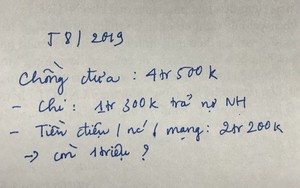 T 8 / 2019
Chồng đưa : 4tr 500k
- Chi : 1tr 300k trả nợ NH
- Tiền điện / nc / mạng : 2tr 200k
→ còn 1 triệu ?